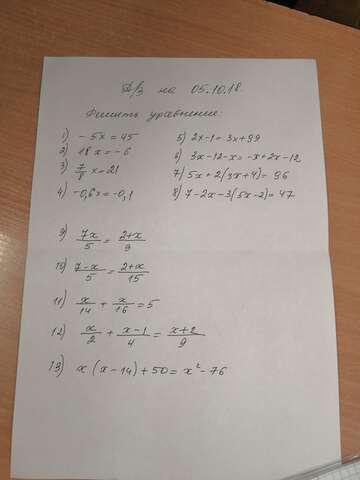 Д/З на 05.10.18.
Решить уравнение:
1) -5x = 45
2) 18x = -6
3) 7/8 x = 21
4) -0,6x = -0,1
5) 2x-1 = 3x+99
6) 3x-12-x = -x+2x-12
7) 5x+2(3x+4) = 96
8) 7-2x-3(5x-2) = 47
9) 7x/5 = 2+x/9
10) 7-x/5 = 2+x/15
11) x/14 + x/16 = 5
12) x/2 + x-1/4 = x+2/9
13) x(x-14)+50 = x²-76